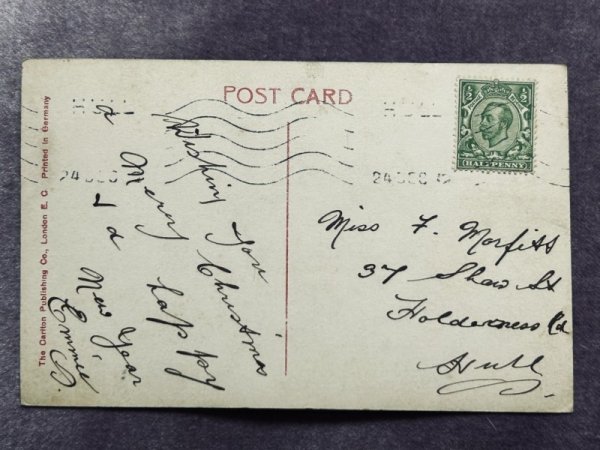 POST CARD
HULL
24 DEC 12
HULL
24 DEC 12
½ ½
HALFPENNY
Wishing you
a Merry Christmas
& a happy
New Year
Emmie
Miss F. Morfitt
37 Shaw St
Holderness Rd
Hull
The Carlton Publishing Co., London E. C. Printed in Germany